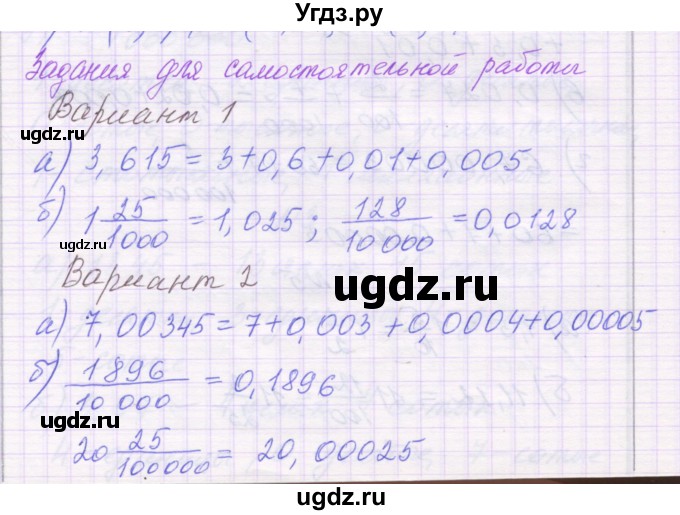 Угдз.ру
Задания для самостоятельной работы
Вариант 1
ugdz.ru
ugdz.ru
а) 3,615 = 3+0,6+0,01+0,005
б) 1 25/1000 = 1,025; 128/10000 = 0,0128
ugdz.ru
Вариант 2
ugdz.ru
ugdz.ru
а) 7,00345 = 7+0,003+0,0004+0,00005
б) 1896/10 000 = 0,1896
ugdz.ru
ugdz.ru
20 25/100000 = 20,00025
ugdz.ru
ugdz.ru